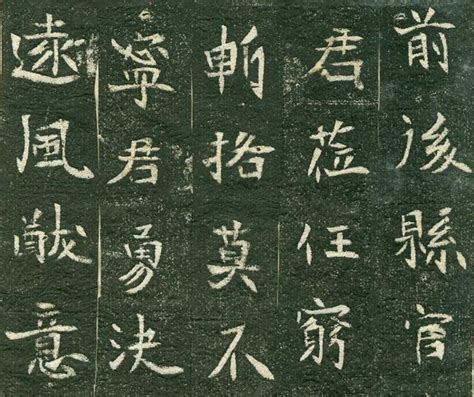 前後縣官
君莅任窮
斬挌莫不
寧君勇決
遠風猷意